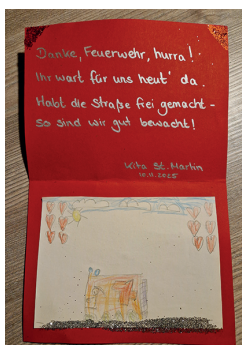 Danke, Feuerwehr, hurra!
Ihr wart für uns heut' da.
Habt die Straße frei gemacht -
so sind wir gut bewacht!
Kita St. Martin
10.11.2025